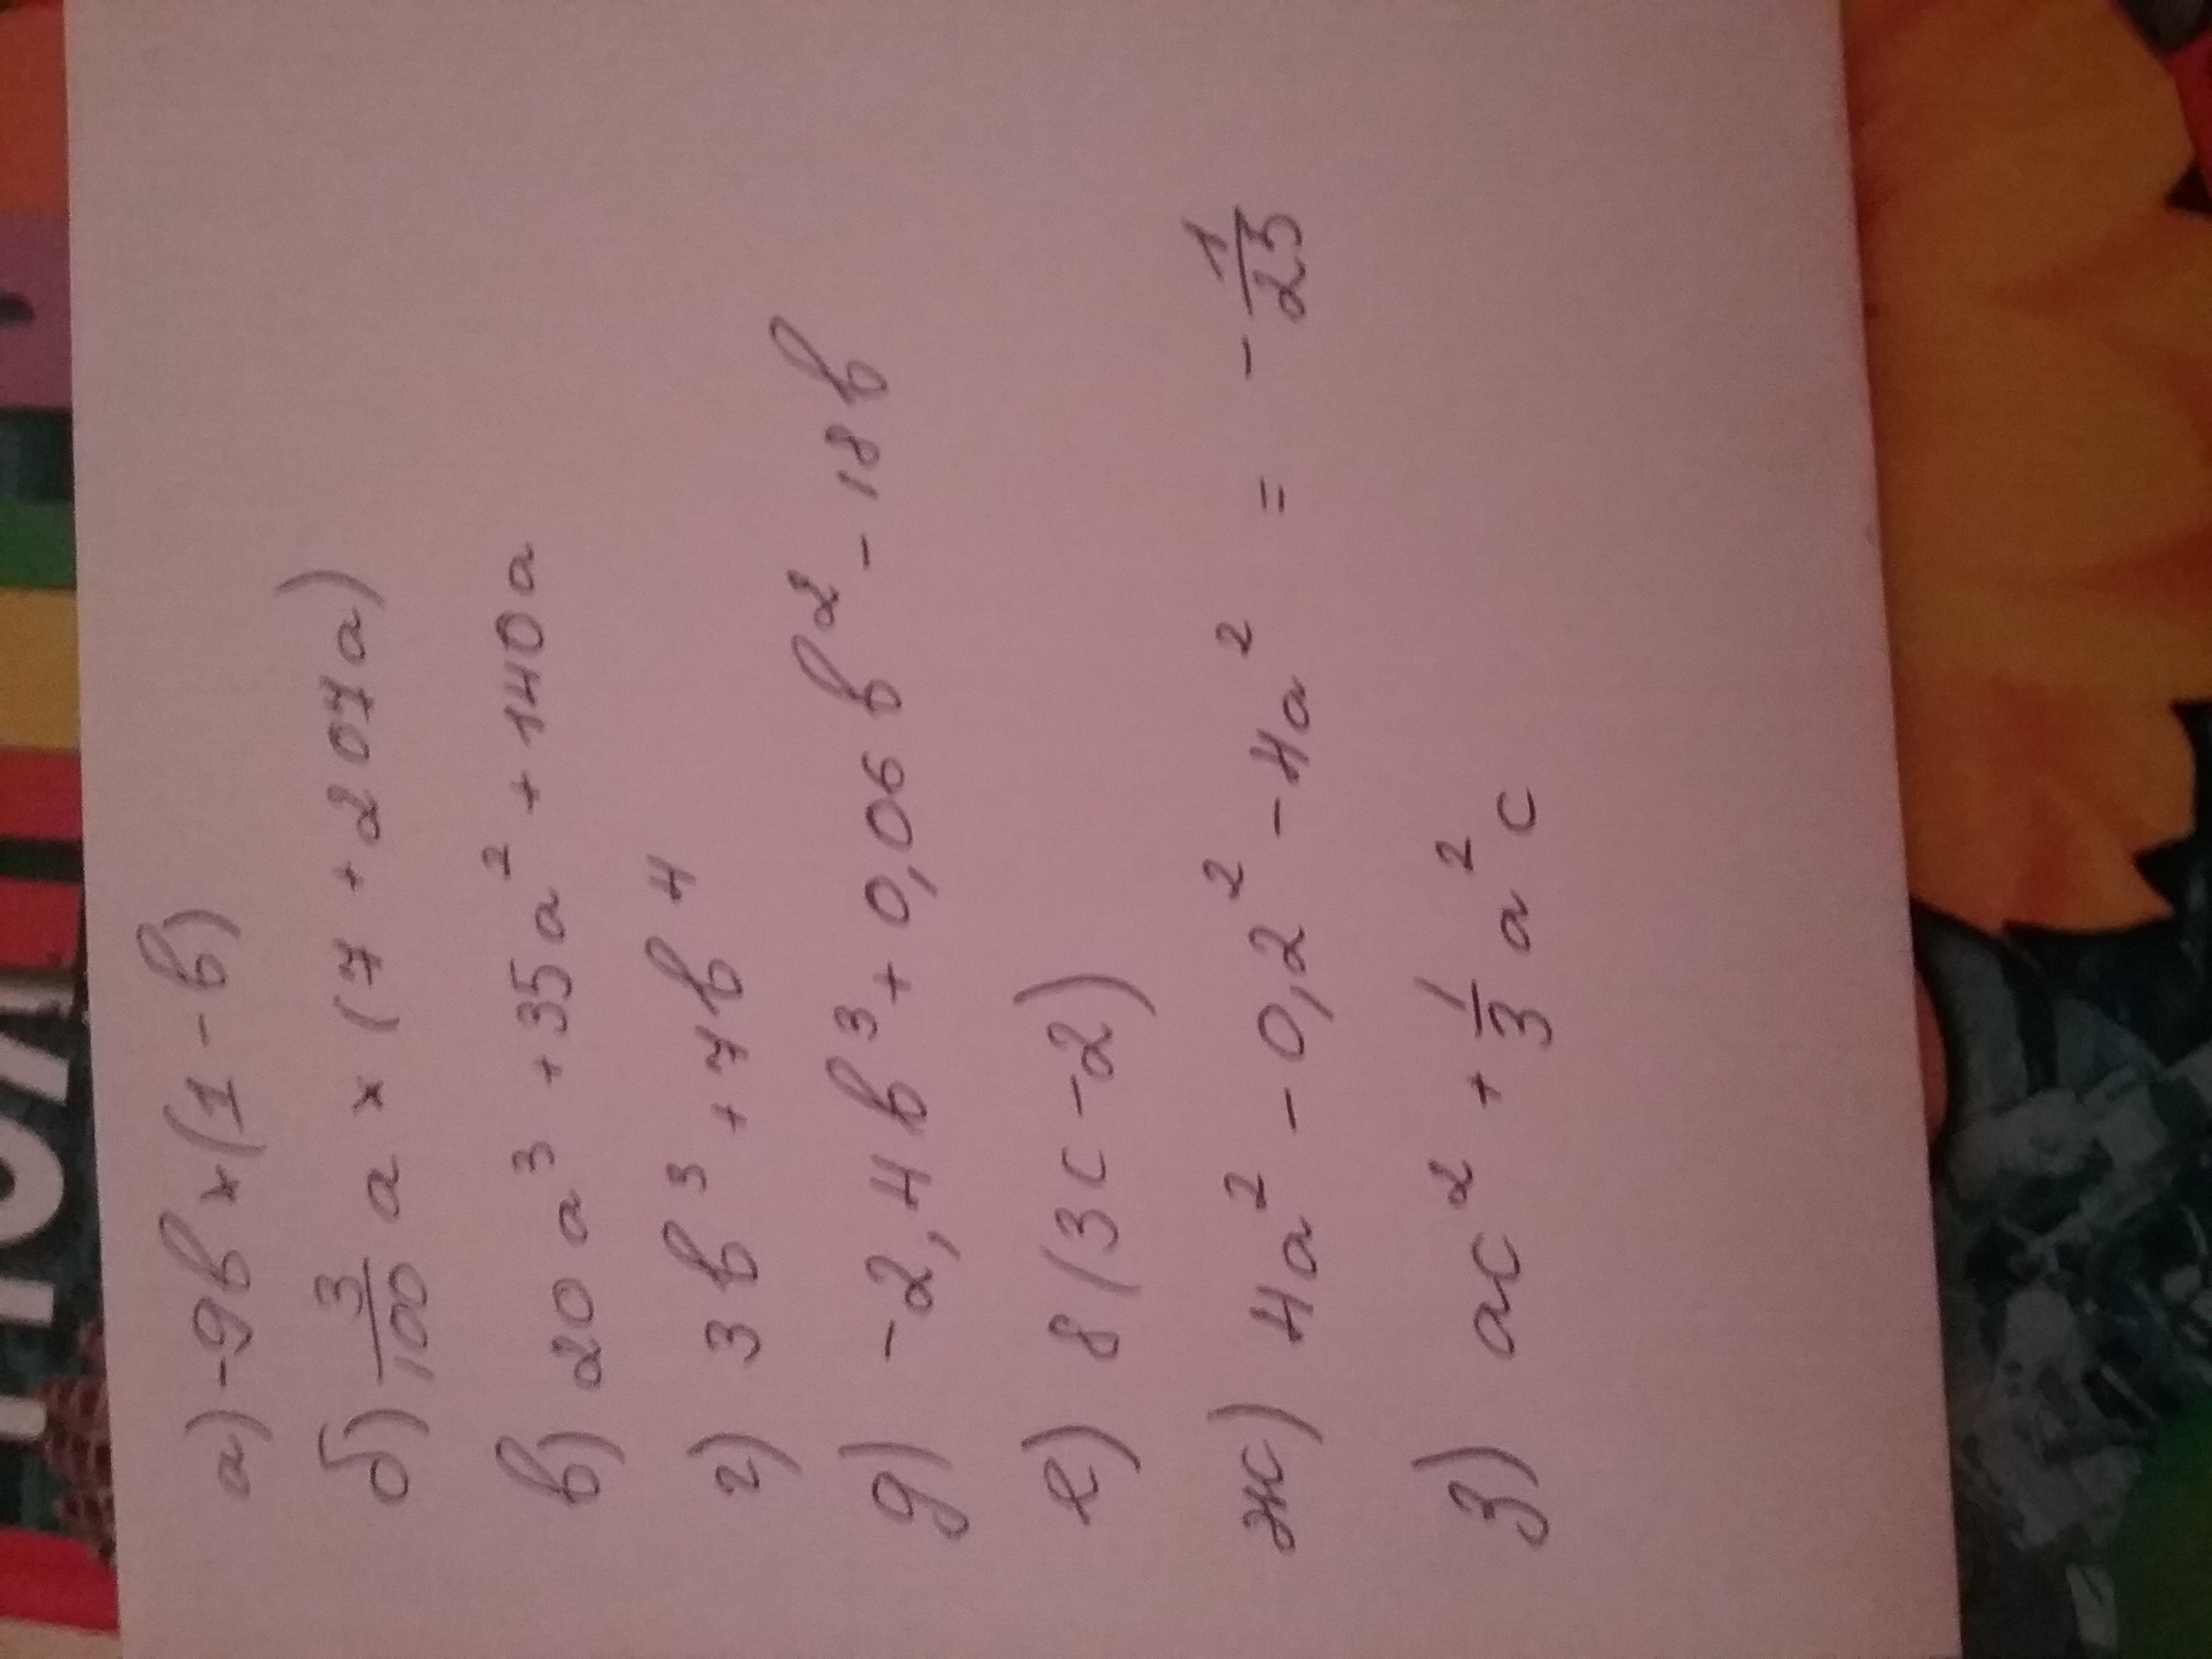 а) -9в x (1 - в)
б) 3/100 a x (7 + 207a)
в) 20a³ + 35a² + 140a
г) 3в³ + 7в⁴
д) -2,4в³ + 0,06в² - 18в
е) 8(3c - 2)
ж) 4a² - 0,2² - 4a² = - 1/25
з) ac² + 1/3 a²c